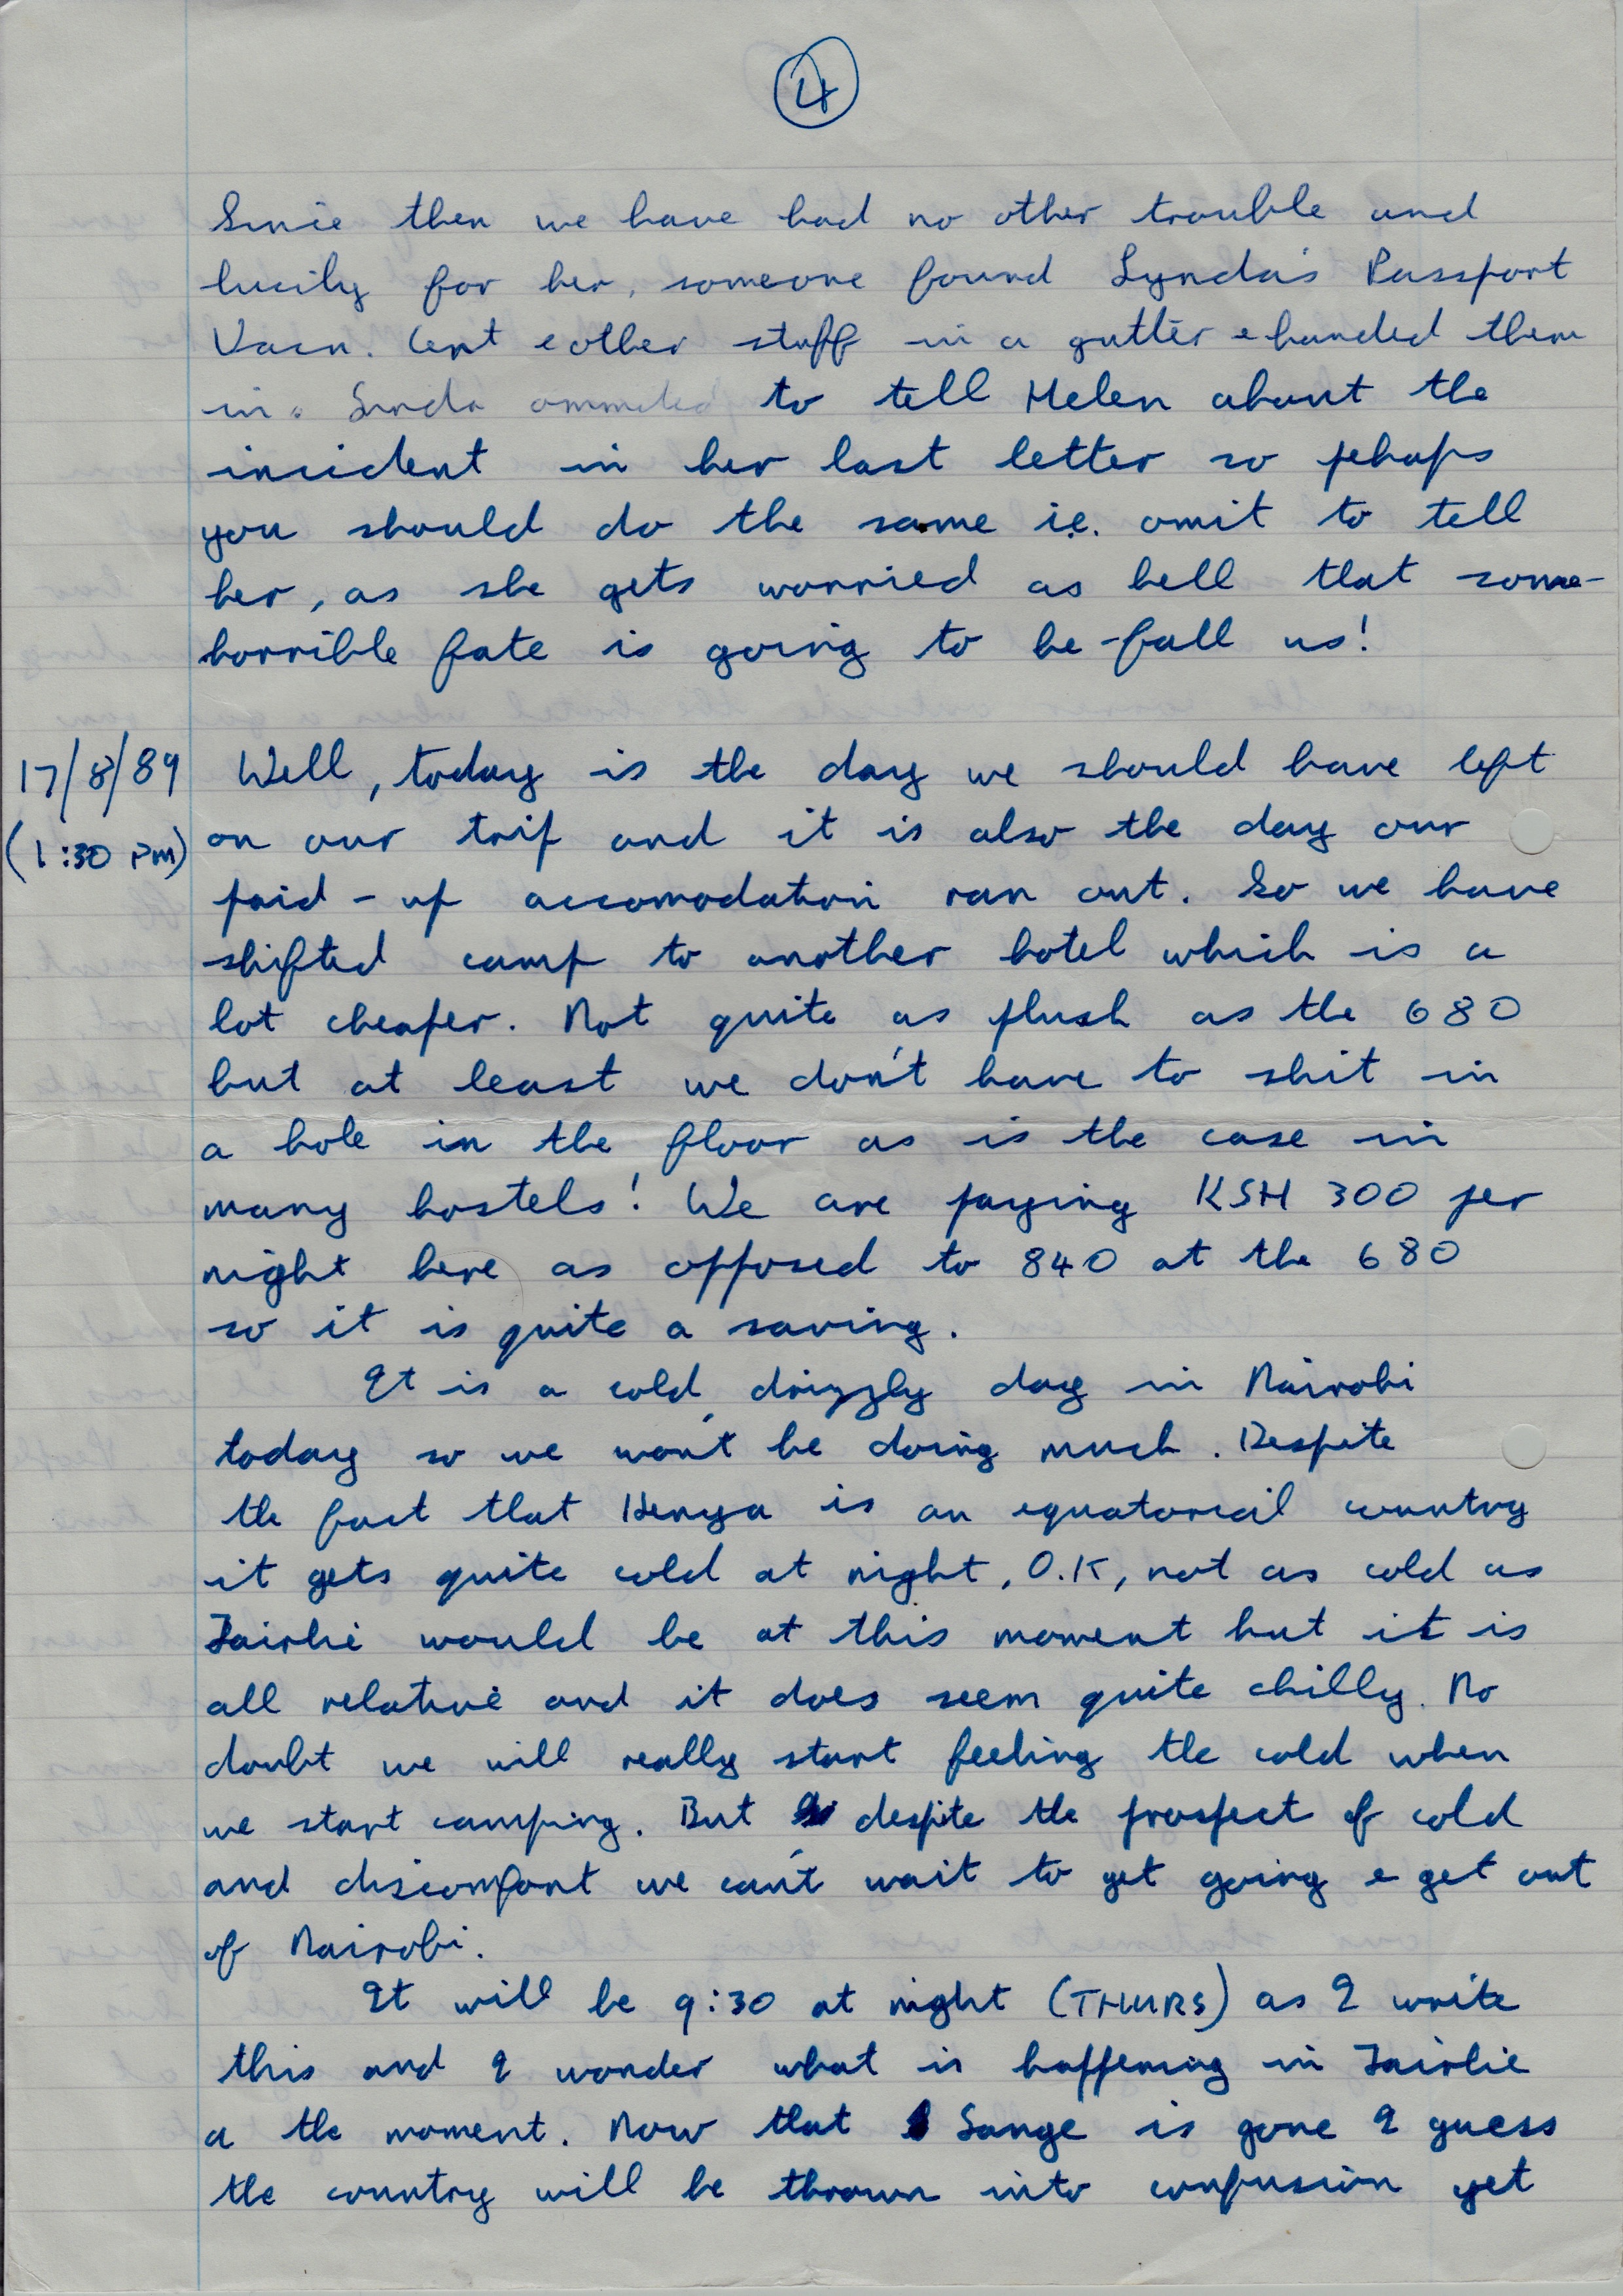 4
Since then we have had no other trouble and
lucily for her, someone found Lynda's Passport
Vacn. Cert & other stuff in a gutter & handed them
in. Linda ommited to tell Helen about the
incident in her last letter so pehaps
you should do the same i.e. omit to tell
her, as she gets worried as hell that some-
horrible fate is going to be-fall us!
17/8/89 Well, today is the day we should have left
(1:30 PM) on our trip and it is also the day our
paid-up accomodation ran out. So we have
shifted camp to another hotel which is a
lot cheaper. Not quite as plush as the 680
but at least we don't have to shit in
a hole in the floor as is the case in
many hostels! We are paying KSH 300 per
night here as opposed to 840 at the 680
so it is quite a saving.
It is a cold, drizzly day in Nairobi
today so we won't be doing much. Despite
the fact that Kenya is an equatorial country
it gets quite cold at night, O.K, not as cold as
Fairlie would be at this moment but it is
all relative and it does seem quite chilly. No
doubt we will really start feeling the cold when
we start camping. But despite the prospect of cold
and discomfort we can't wait to get going & get out
of Nairobi.
It will be 9:30 at night (THURS) as I write
this and I wonder what is happening in Fairlie
a the moment. Now that Longe is gone I guess
the country will be thrown into confusion yet